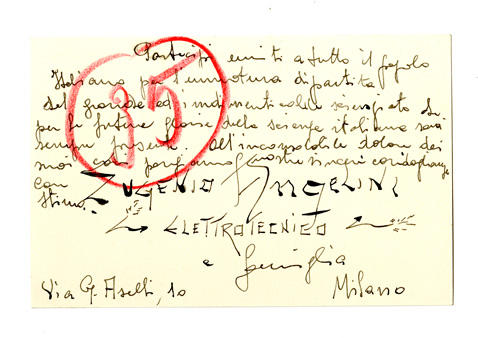 Partecipi uniti a tutto il popolo
Italiano per l'immatura dipartita
del grande ed indimenticabile scienziato che
per le future glorie della scienza italiana sarà
sempre presente. All'inconsolabile dolore dei
suoi cari porgiamo nostre sincere condoglianze
con
stima.
EUGENIO ANGELINI
ELETTROTECNICO
e famiglia
Via G. Aselli, 10 Milano
35